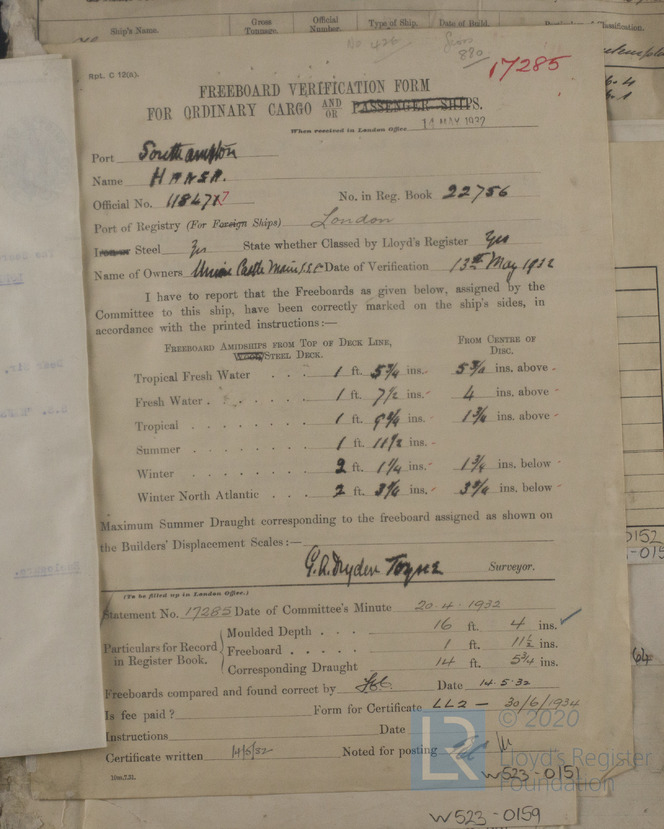 Ship's Name. Gross Tonnage. Official Number. Type of Ship. Date of Build. Classification.
No 426
890
17285
Rpl. C 12(A).
FREEBOARD VERIFICATION FORM
FOR ORDINARY CARGO AND OR PASSENGER SHIPS.
When received in London Office 14 MAY 1932
Port Southampton
Name HANSA.
Official No. 118471 7 No. in Reg. Book 22756
Port of Registry (For Foreign Ships) London
Iron or Steel Yes State whether Classed by Lloyd's Register Yes
Name of Owners Union Castle Mail S.S. Co Date of Verification 13th May 1932
I have to report that the Freeboards as given below, assigned by the
Committee to this ship, have been correctly marked on the ship's sides, in
accordance with the printed instructions:—
FREEBOARD AMIDSHIPS FROM TOP OF DECK LINE, FROM CENTRE OF
STEEL DECK. DISC.
Tropical Fresh Water . . . 1 ft. 5 3/4 ins. 5 3/4 ins. above
Fresh Water . . . . . . . 1 ft. 7 1/2 ins. 4 ins. above
Tropical . . . . . . . 1 ft. 9 3/4 ins. 1 3/4 ins. above
Summer . . . . . . . 1 ft. 11 1/2 ins.
Winter . . . . . . . 2 ft. 1 1/4 ins. 1 3/4 ins. below
Winter North Atlantic . . . 2 ft. 3 1/4 ins. 3 3/4 ins. below
Maximum Summer Draught corresponding to the freeboard assigned as shown on
the Builders' Displacement Scales:—
G. A. Dryden Toyne Surveyor.
(To be filled up in London Office.)
Statement No. 17285 Date of Committee's Minute 20.4.1932
Particulars for Record in Register Book.
Moulded Depth . . . 16 ft. 4 ins.
Freeboard . . . . . 1 ft. 11 1/2 ins.
Corresponding Draught 14 ft. 5 3/4 ins.
Freeboards compared and found correct by Date 14.5.32
Is fee paid? Form for Certificate LL2 — 30/6/1934
Instructions Date
Certificate written 14/5/32 Noted for posting
10m,7.31.
© 2020
LR
Lloyd's Register
Foundation
W523-0151
W523-0159
0152